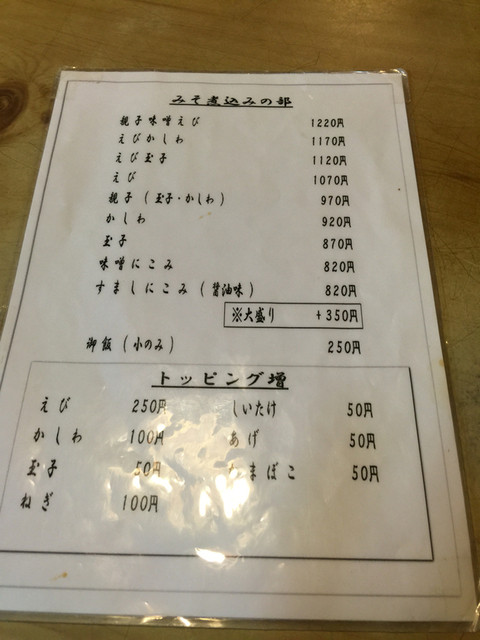 みそ煮込みの部
親子味噌えび 1220円
えびかしわ 1170円
えび玉子 1120円
えび 1070円
親子(玉子・かしわ) 970円
かしわ 920円
玉子 870円
味噌にこみ 820円
すましにこみ(醤油味) 820円
※大盛り +350円
御飯(小のみ) 250円
トッピング増
えび 250円 しいたけ 50円
かしわ 100円 あげ 50円
玉子 50円 かまぼこ 50円
ねぎ 100円